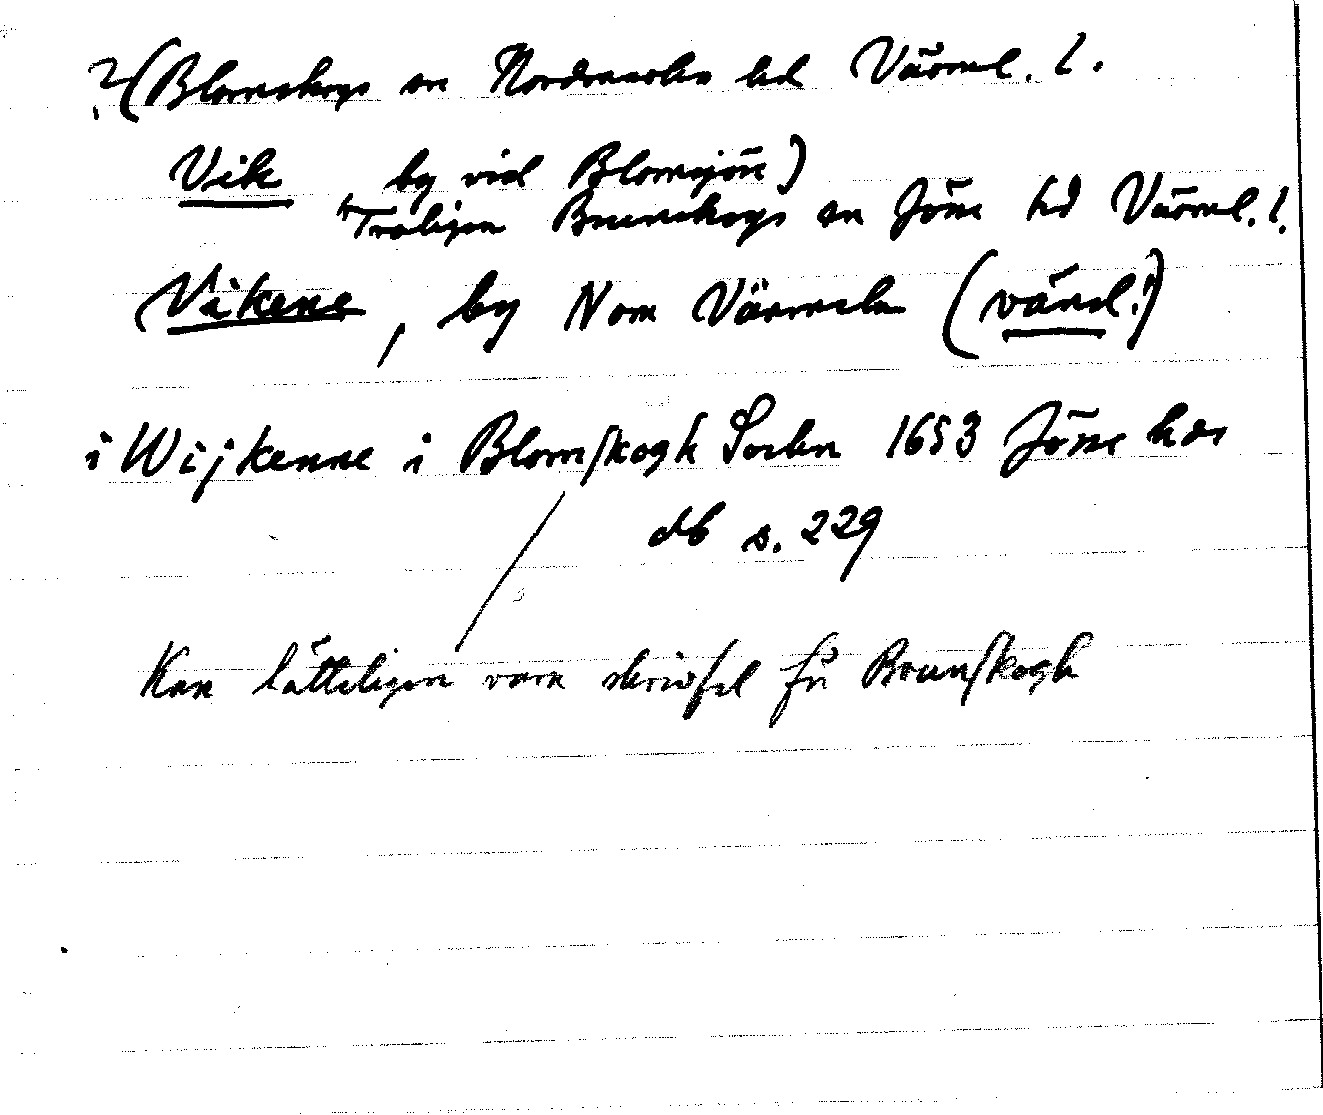 ?(Blomskogs sn Nordmarks hd Värml. l.
Vik by vid Blomsjön)
Troligen Brunskogs sn Jösse hd Värml. l.
Vikene, by N om Värmeln (värd!)
i Wijkenne i Blomskogh Sockn 1653 Jösse hds
db s. 229
Kan lätteligen vara skrivfel för Brunskogh